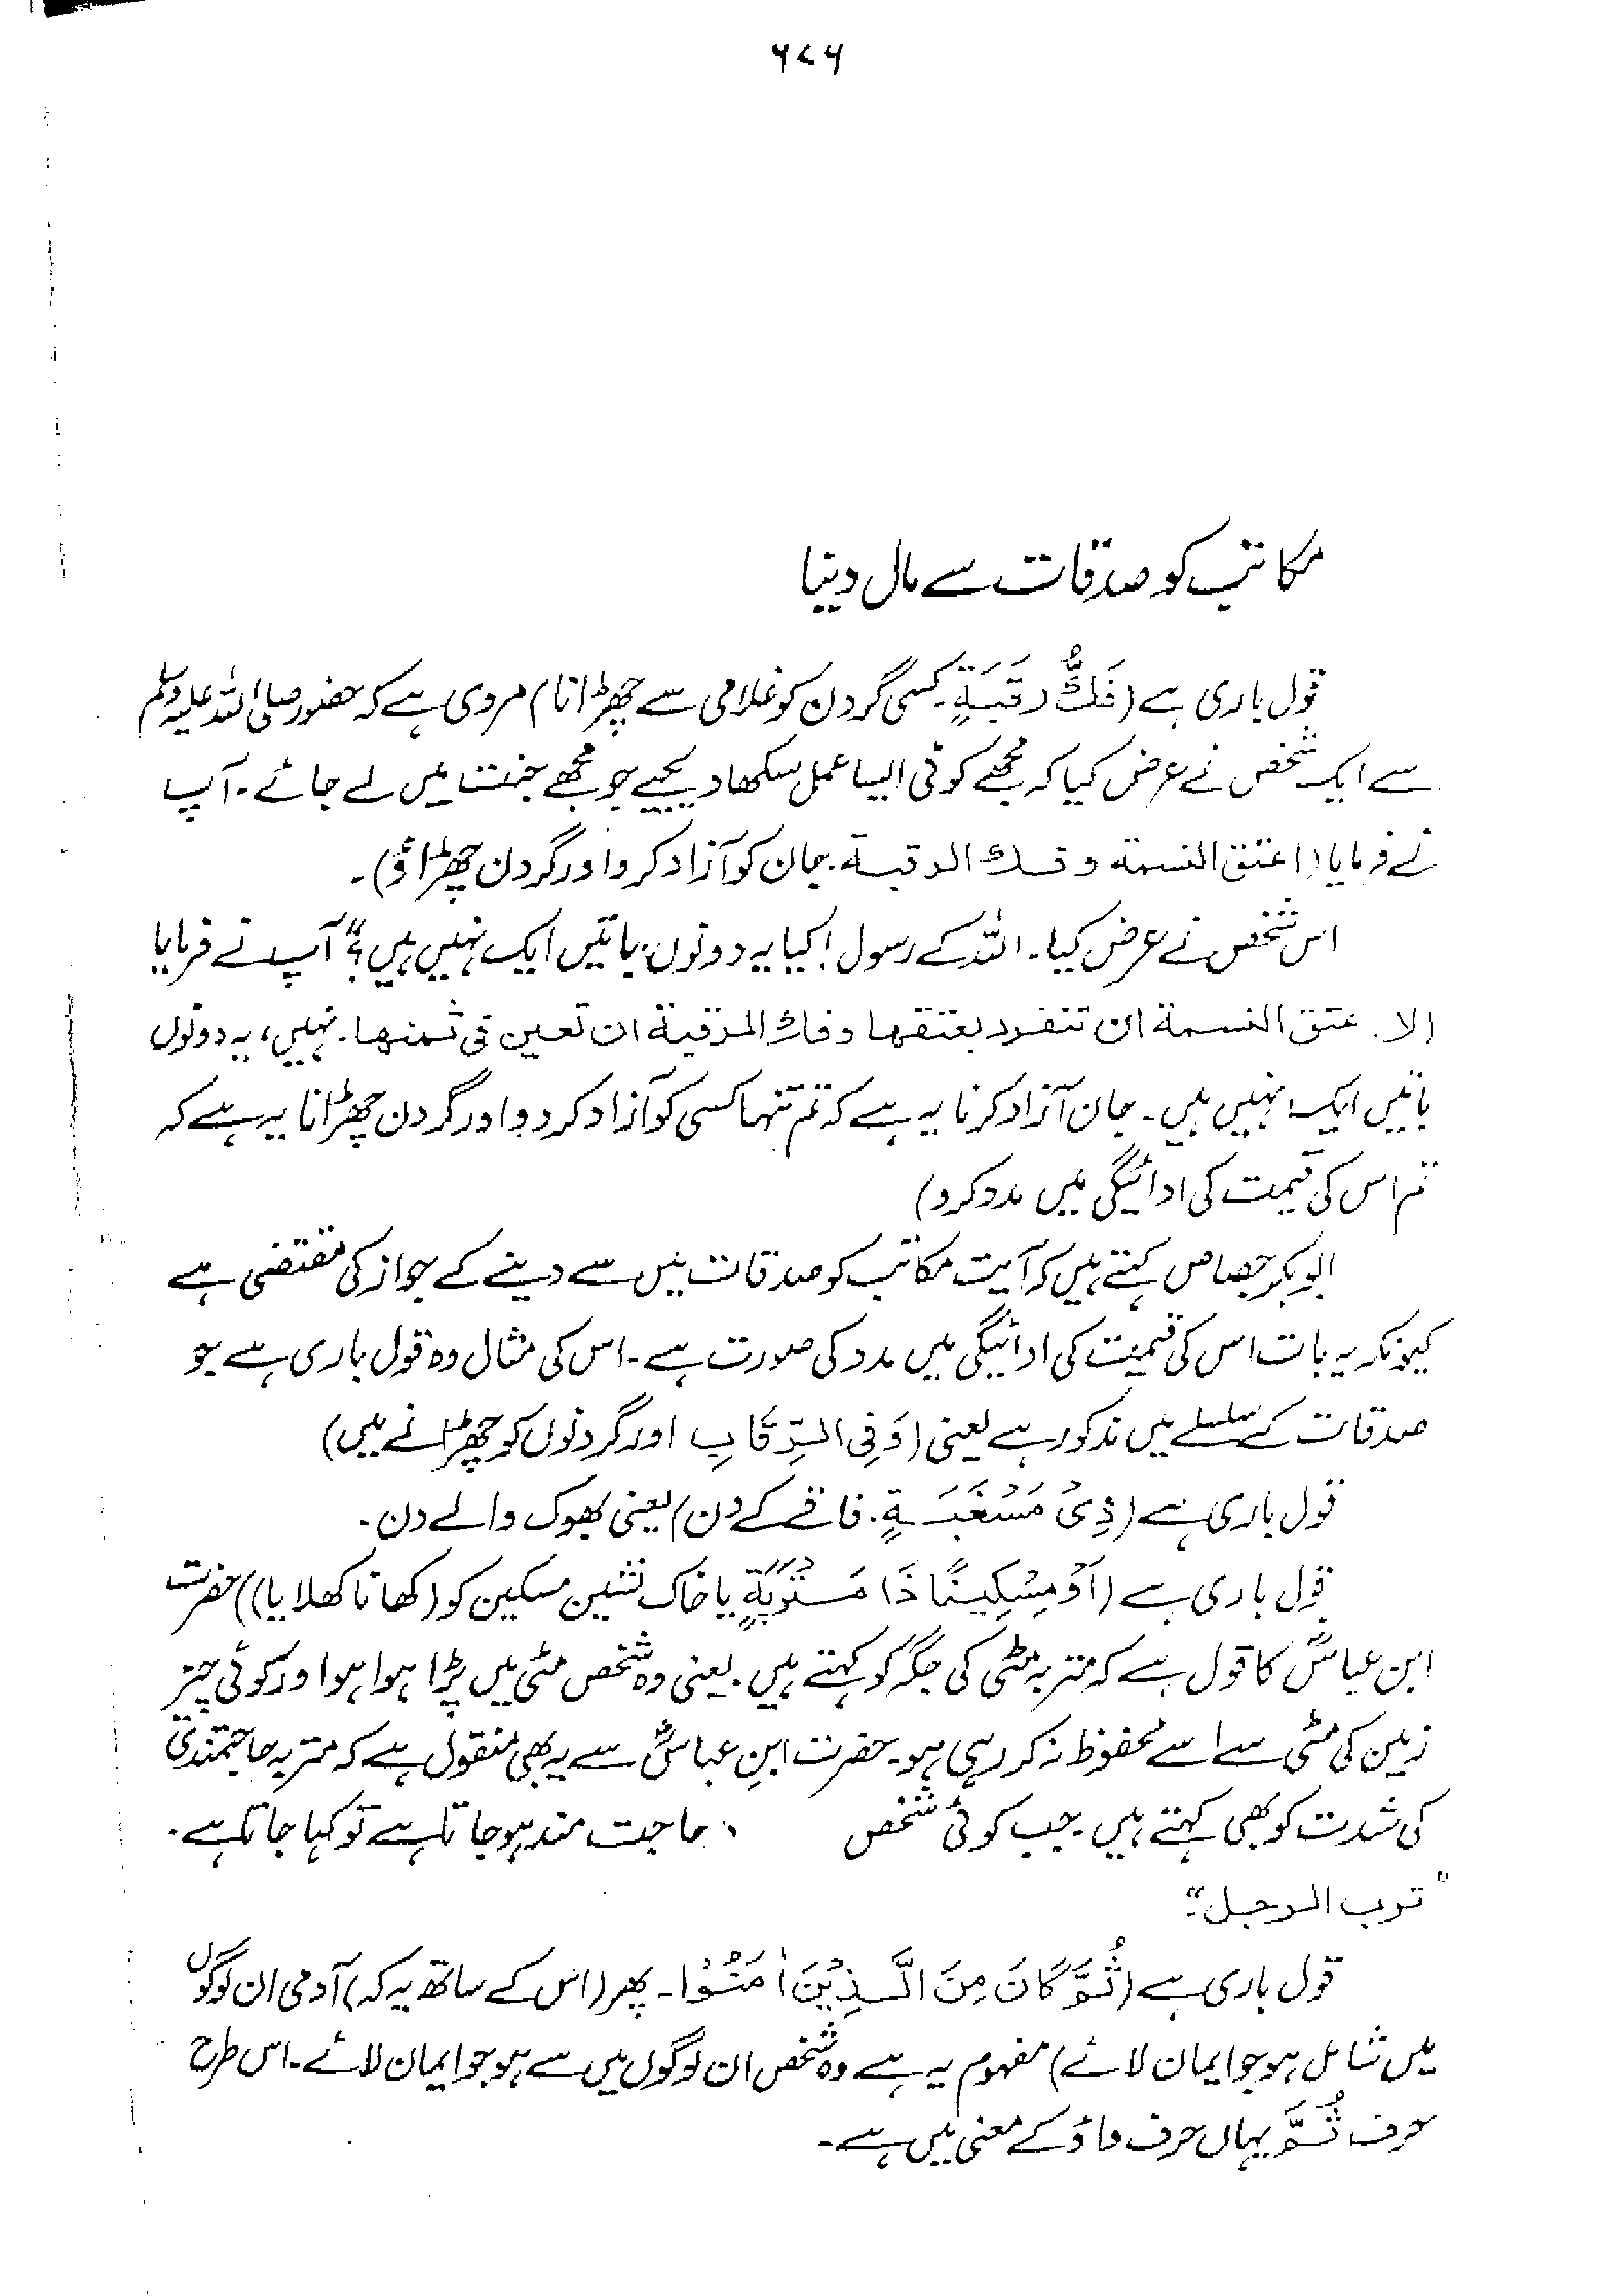 ۶۷۶
مکاتب کو صدقات سے مال دینا
قول باری ہے (فَكُّ رَقَبَةٍ۔ کسی گردن کو غلامی سے چھڑانا) مروی ہے کہ حضور صلی اللہ علیہ وسلم
سے ایک شخص نے عرض کیا کہ مجھے کوئی ایسا عمل سکھا دیجیے جو مجھے جنت میں لے جائے۔ آپ
نے فرمایا (اعتق النسمة و فك الرقبة۔ جان کو آزاد کرو اور گردن چھڑاؤ)۔
اس شخص نے عرض کیا۔ اللہ کے رسول! کیا یہ دونوں باتیں ایک نہیں ہیں؟" آپ نے فرمایا
(لا۔ عتق النسمة ان تنفرد بعتقها و فاك الرقبة ان تعین فی ثمنها۔ نہیں، یہ دونوں
باتیں ایک نہیں ہیں۔ جان آزاد کرنا یہ ہے کہ تم تنہا کسی کو آزاد کر دو اور گردن چھڑانا یہ ہے کہ
تم اس کی قیمت کی ادائیگی میں مدد کرو)
ابوبکر جصاص کہتے ہیں کہ آیت مکاتب کو صدقات میں سے دینے کے جواز کی مقتضی ہے
کیونکہ یہ بات اس کی قیمت کی ادائیگی میں مدد کی صورت ہے۔ اس کی مثال وہ قول باری ہے جو
صدقات کے سلسلے میں مذکور ہے یعنی (وَفِی الرِّقَابِ اور گردنوں کو چھڑانے میں)
قول باری ہے (ذِیْ مَسْغَبَةٍ۔ فاقے کے دن) یعنی بھوک والے دن۔
قول باری ہے (اَوْ مِسْكِیْنًا ذَا مَتْرَبَةٍ یا خاک نشین مسکین کو (کھانا کھلایا)) حضرت
ابن عباسؓ کا قول ہے کہ متربہ مٹی کی جگہ کو کہتے ہیں۔ یعنی وہ شخص مٹی میں پڑا ہوا ہو اور کوئی چیز
زمین کی مٹی سے اسے محفوظ نہ کر رہی ہو۔ حضرت ابنِ عباسؓ سے یہ بھی منقول ہے کہ متربہ حاجتمندی
کی شدت کو بھی کہتے ہیں۔ جب کوئی شخص حاجت مند ہو جاتا ہے تو کہا جاتا ہے۔
"ترب الرجل"۔
قول باری ہے (ثُمَّ كَانَ مِنَ الَّذِیْنَ اٰمَنُوْا۔ پھر (اس کے ساتھ یہ کہ) آدمی ان لوگوں
میں شامل ہو جو ایمان لائے) مفہوم یہ ہے وہ شخص ان لوگوں میں سے ہو جو ایمان لائے۔ اس طرح
حرف ثُمَّ یہاں حرف واؤ کے معنی میں ہے۔